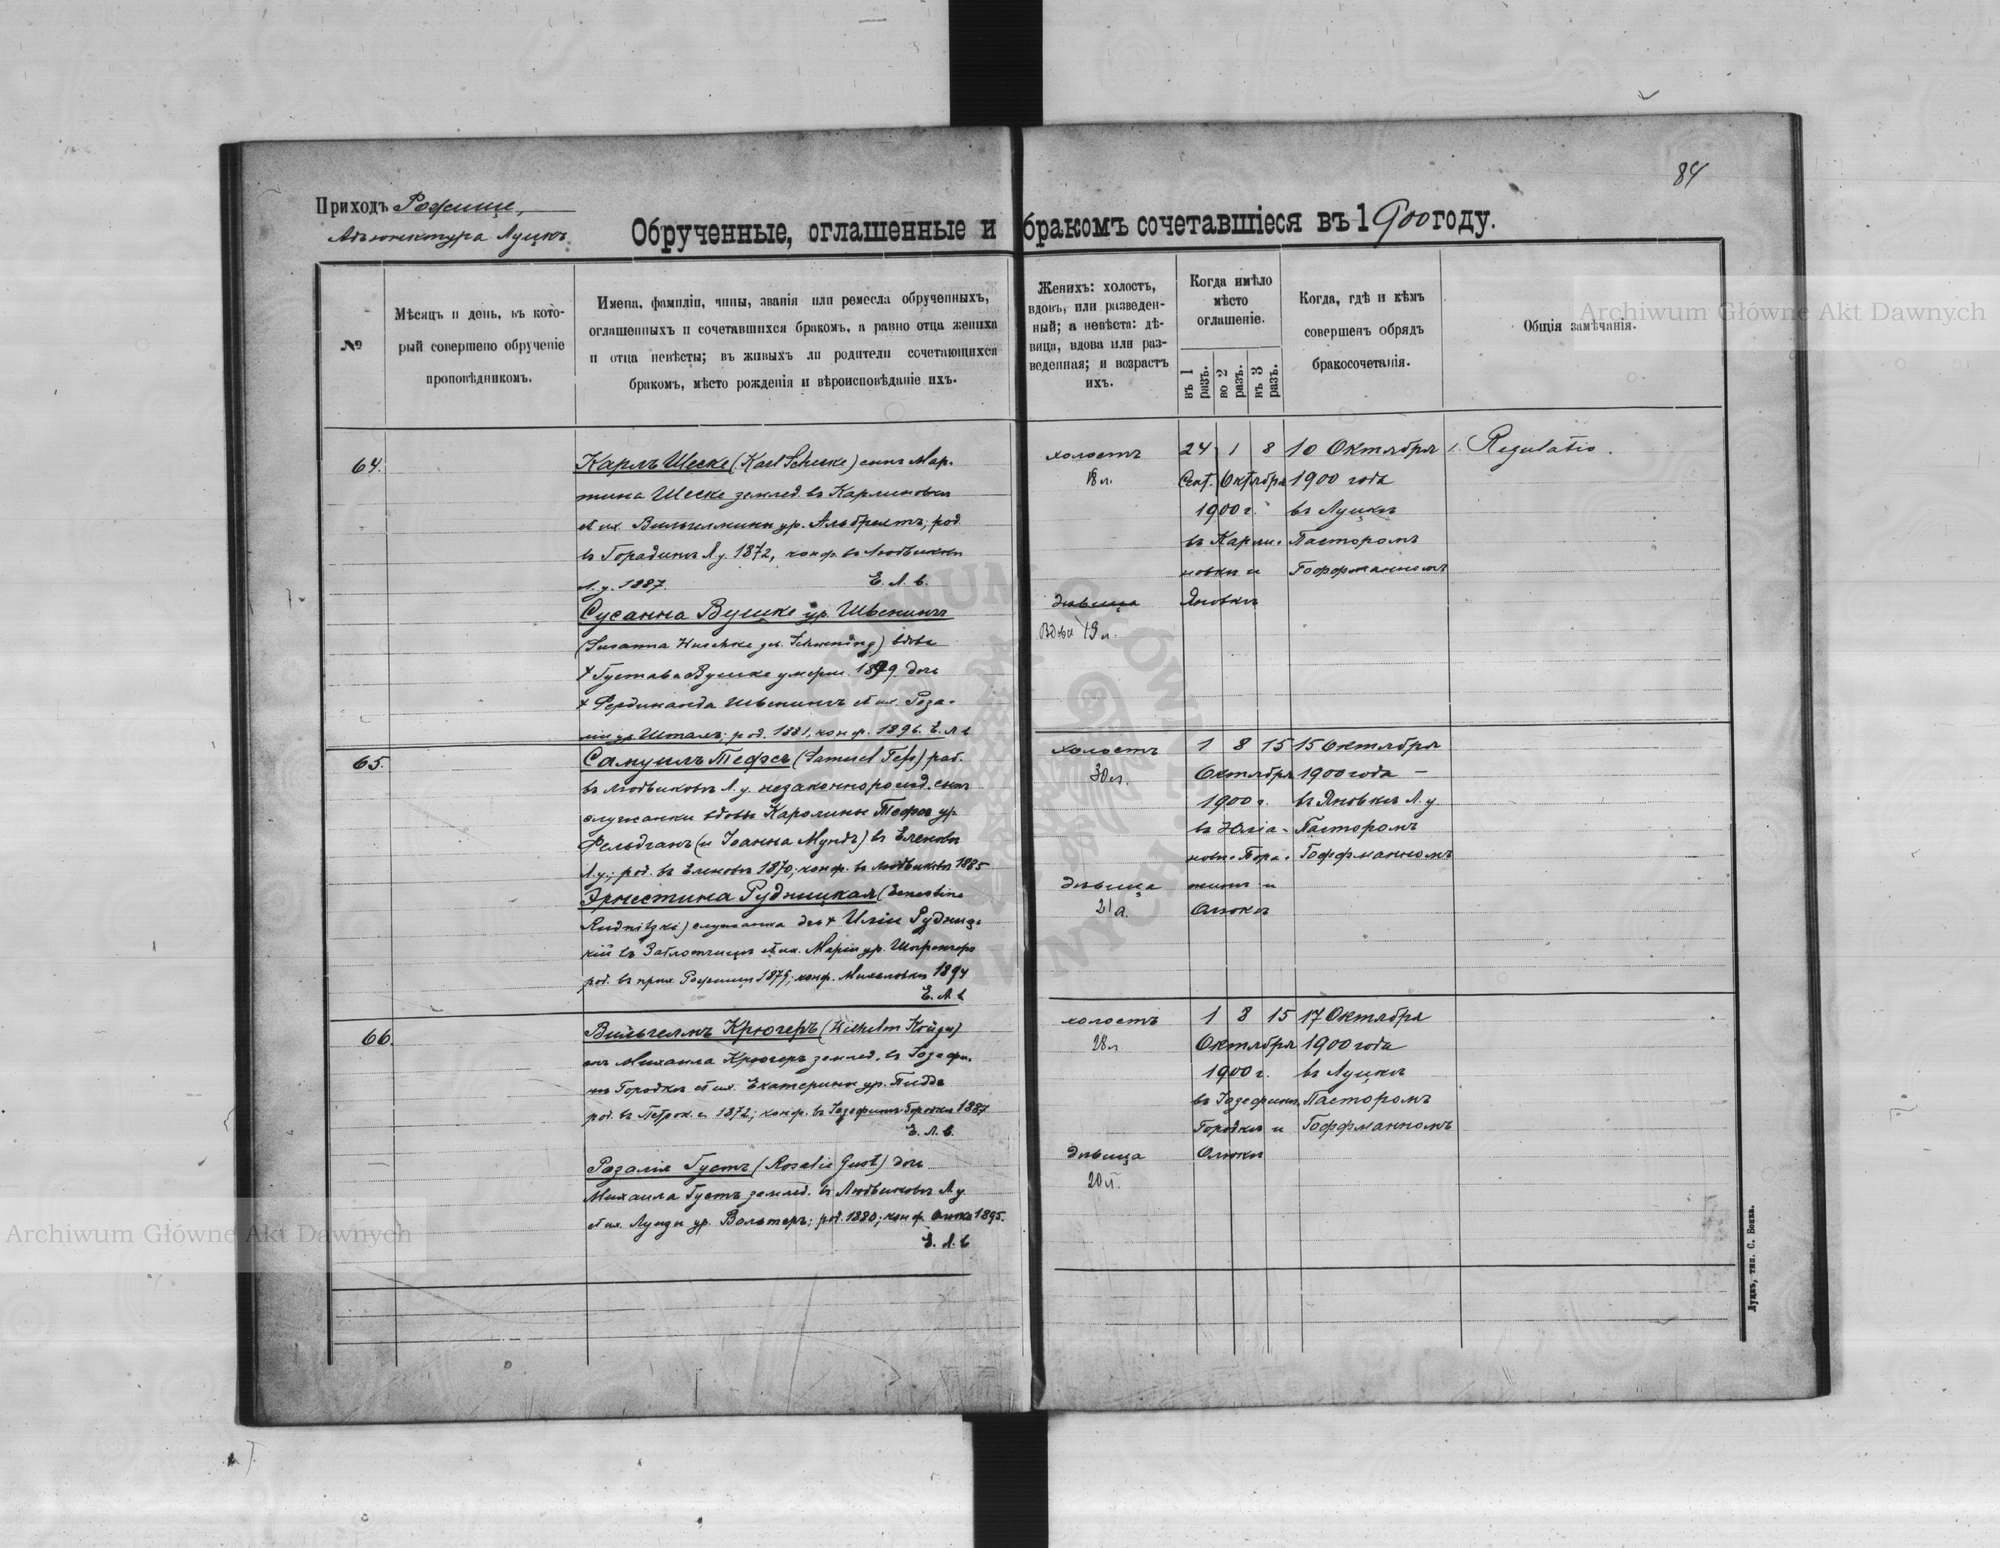 84
Приходъ Рожище,
Адъюнктура Луцкъ
Обрученные, оглашенные и бракомъ сочетавшіеся въ 1900 году.
№
Мѣсяцъ и день, въ кото-
рый совершено обрученіе
проповѣдникомъ.
Имена, фамиліи, чины, званія или ремесла обрученныхъ,
оглашенныхъ и сочетавшихся бракомъ, а равно отца жениха
и отца невѣсты; въ живыхъ ли родители сочетающихся
бракомъ, мѣсто рожденія и вѣроисповѣданіе ихъ.
Женихъ: холостъ,
вдовъ, или разведен-
ный; а невѣста: дѣ-
вица, вдова или раз-
веденная; и возрастъ
ихъ.
Когда имѣло
мѣсто
оглашеніе.
въ 1 разъ.
во 2 разъ.
въ 3 разъ.
Когда, гдѣ и кѣмъ
совершенъ обрядъ
бракосочетанія.
Общія замѣчанія.
64.
Карлъ Шеске (Karl Scheske) сынъ Мар-
тина Шеске землед. въ Карлиновкѣ
и их. Вильгелмины ур. Альбрехтъ; род.
въ Горадинъ Л у. 1872, конф. въ Людвиковѣ
Л. у. 1887. Е. Л. в.
Сусанна Вушке ур. Швенингъ
(Susanna Wuschke geb. Schwening) вдова
† Густава Вушке умерш. 1899. дочь
† Фердинанда Швенингъ и их. Роза-
ліи ур. Шталъ; род. 1881, конф. 1896. Е. Л. в
холостъ
28 л.
дѣвица
Вдова 19 л.
24 1 8
Сент. Октября
1900 г.
въ Карли-
новкѣ и
Яновкѣ
10 Октября
1900 года
въ Луцкѣ
Пасторомъ
Гоффманномъ
1. Regulatio.
65.
Самуилъ Тефсъ (Samuel Tefs) раб.
въ Людвиковѣ Л. у. незаконнорожд. сынъ
служанки вдовы Каролины Тефсъ ур.
Фельдганъ (и Іоанна Мундъ) въ Еленовѣ
Л. у.; род. въ Еленовѣ 1870; конф. въ Людвиковѣ 1885
Эрнестина Рудницкая (Ernestine
Rudnitzki) служанка дочь † Иліи Рудниц-
кій въ Заблотчицѣ и их. Маріи ур.
род. въ прих. Рожищи 1879; конф. Михаловкѣ 1894
Е. Л. в
холостъ
30 л.
дѣвица
21 л.
1 8 15
Октября
1900 г.
въ Юліа-
новѣ-Тора-
жинъ и
Олыкѣ
15 Октября
1900 года —
въ Яновкѣ Л. у
Пасторомъ
Гоффманномъ
66.
Вильгелмъ Крюгеръ (Wilhelm Krüger)
сынъ Михаила Крюгеръ землед. въ Іозефи-
нѣ Городкѣ и их. Екатерины ур. Пиддъ
род. въ Петрок. г. 1872; конф. въ Іозефинъ-Городкѣ 1887
Е. Л. в.
Розалія Густъ (Rosalie Gust) дочь
Михаила Густъ землед. въ Людвиковѣ Л. у.
и их. Луизы ур. Вольтеръ; род. 1880; конф. Олыка 1895.
Е. Л. в
холостъ
28 л
дѣвица
20 л.
1 8 15
Октября
1900 г.
въ Іозефинъ
Городкѣ и
Олыкѣ
17 Октября
1900 года
въ Луцкѣ
Пасторомъ
Гоффманномъ
Луцкъ, тип. С. Бонка.
Archiwum Główne Akt Dawnych
Archiwum Główne Akt Dawnych